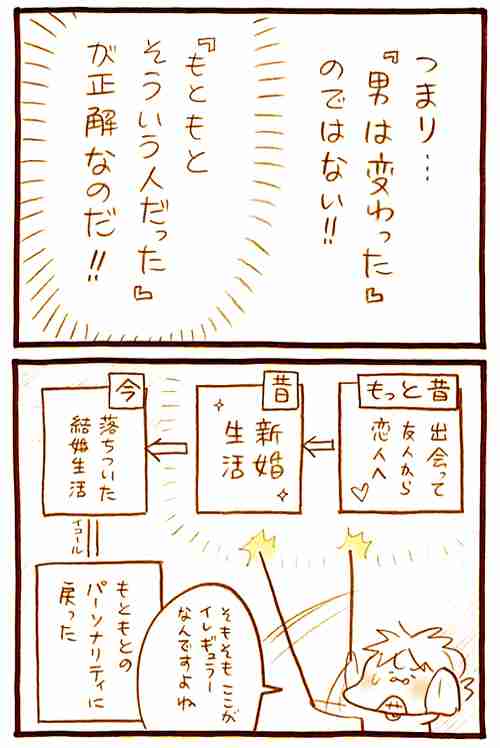 つまり…
『男は変わった』
のではない!!
『もともと
そういう人だった』
が正解なのだ!!
もっと昔
出会って
友人から
恋人へ♡
昔
新婚
生活
今
落ちついた
結婚生活
イコール
もともとの
パーソナリティに
戻った
そもそもここが
イレギュラー
なんですよね